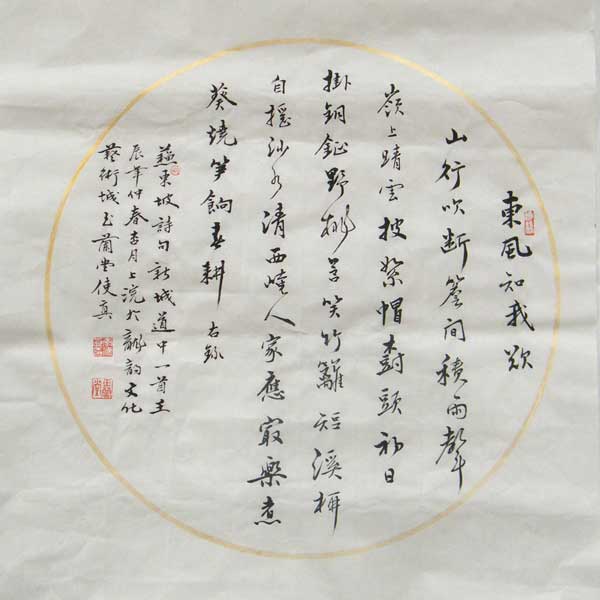 東風知我欲
山行吹断簷間積雨聲
嶺上晴雲披絮帽樹頭初日
掛銅鉦野桃含笑竹籬短溪柳
自摇沙水清西崦人家應冣樂煮
葵燒笋餉春耕 右錄
蘇東坡詩句新城道中一首壬
辰年仲春杏月上浣於龍韵文化
藝術城玉蘭堂使真